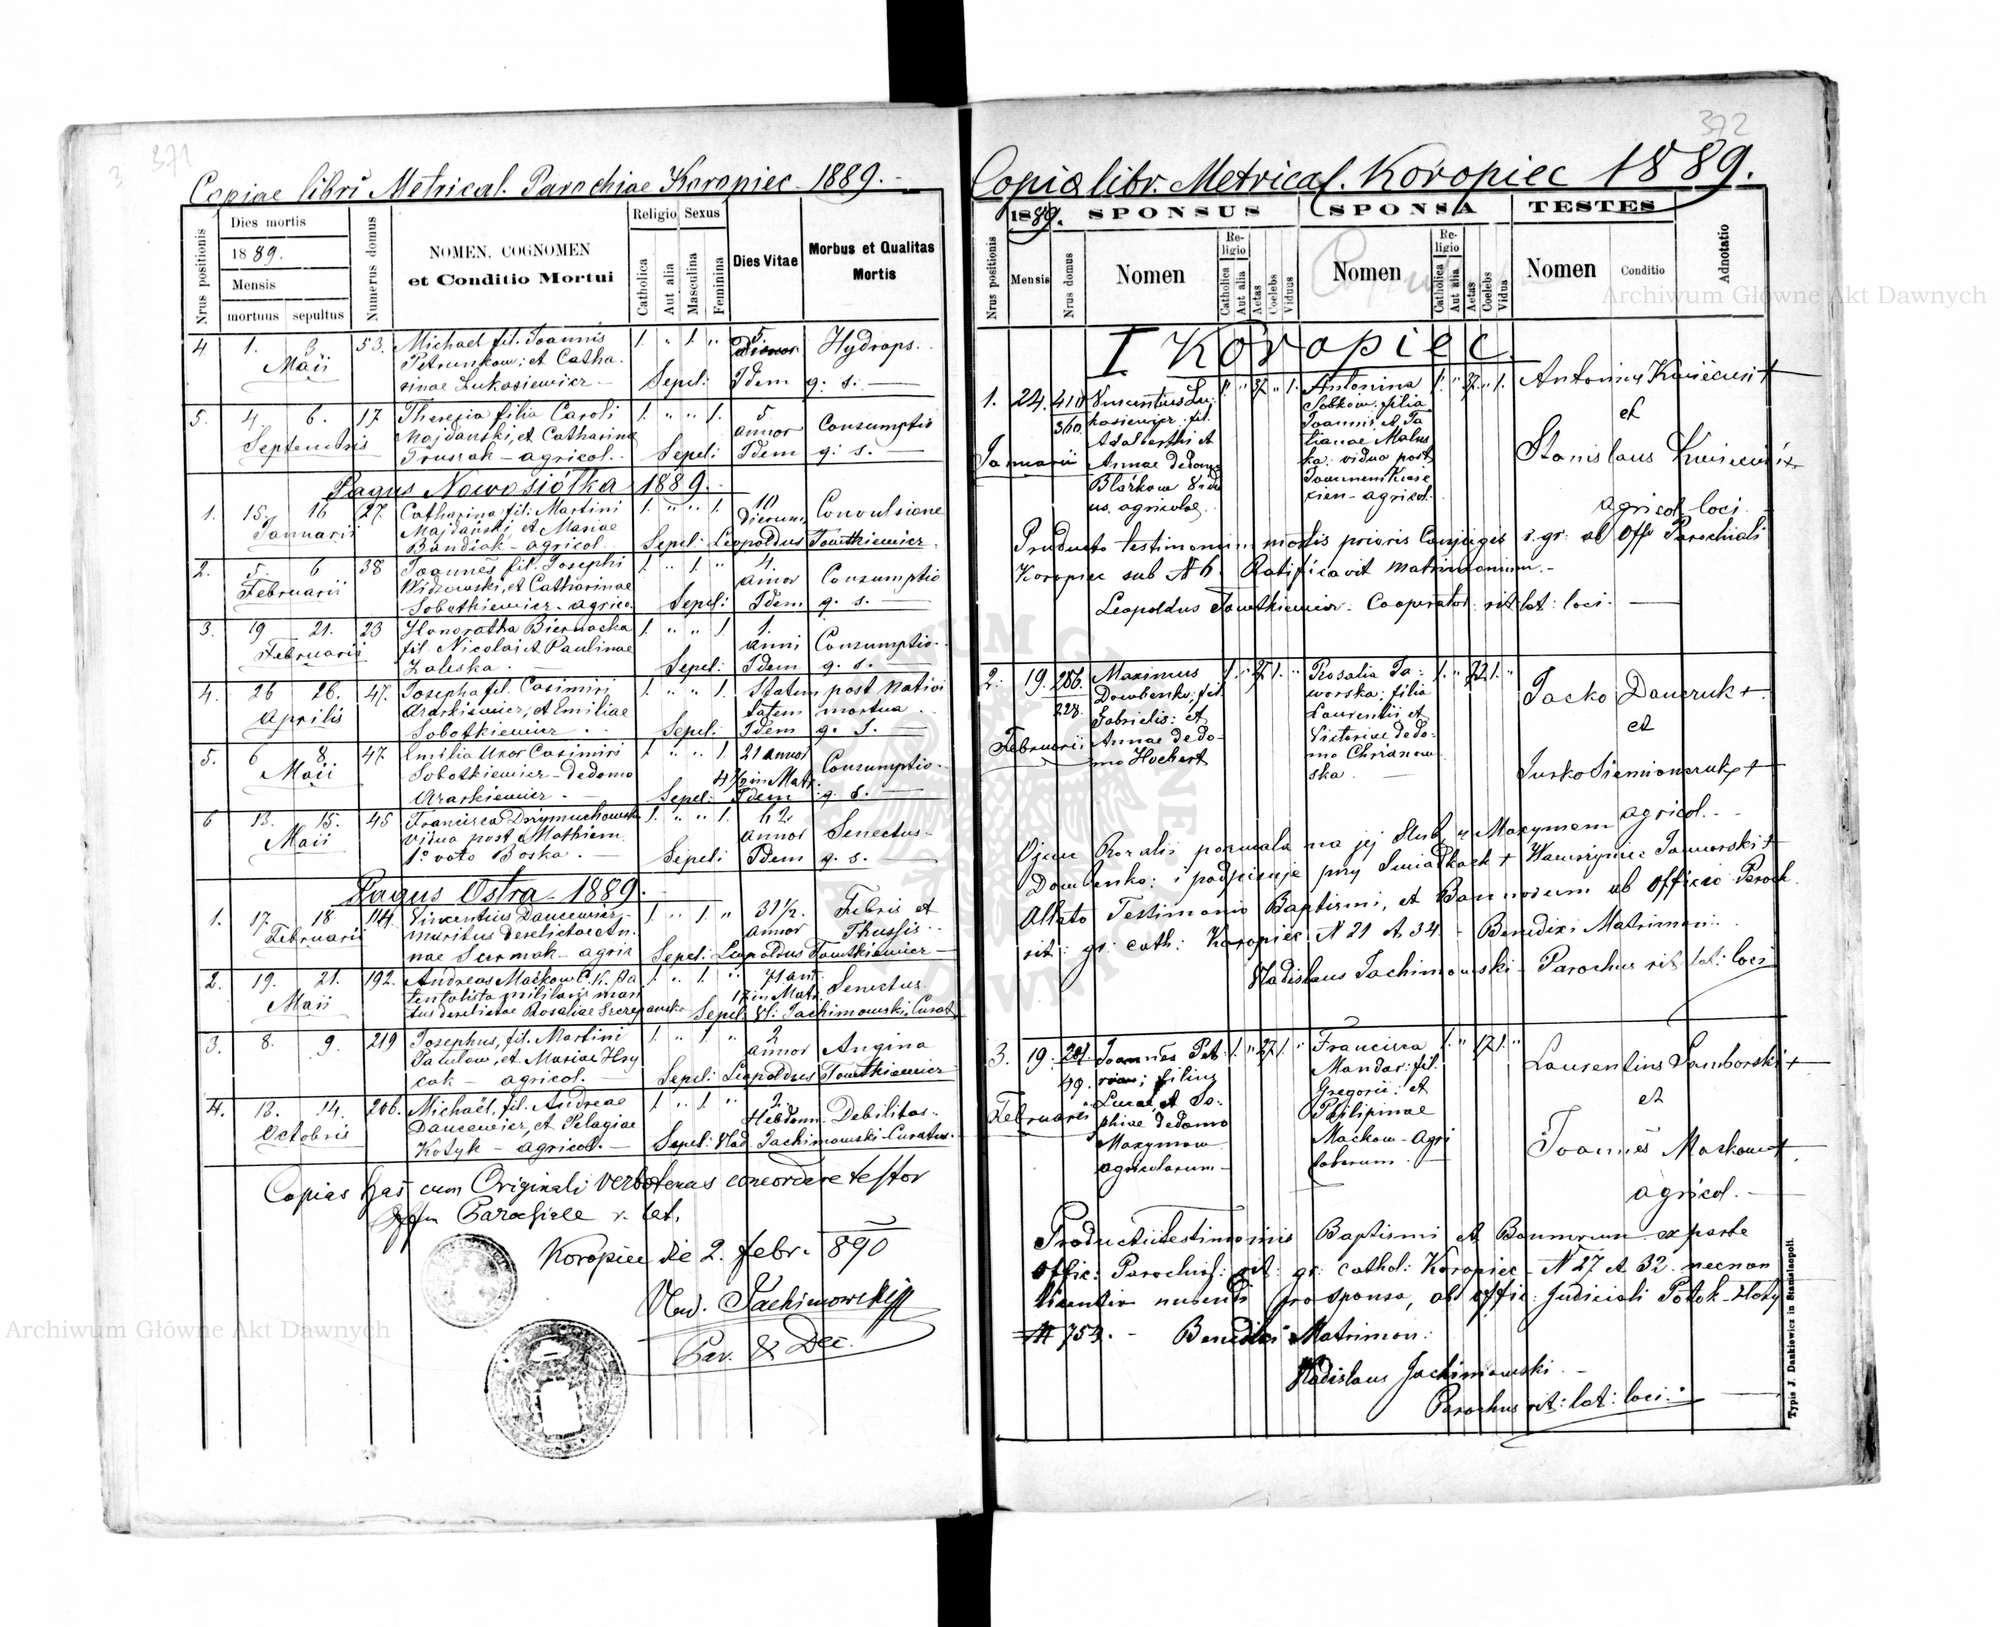 3 371
Copiae libri Metrical. Parochiae Koropiec 1889.-
Nrus positionis
Dies mortis
1889.
Mensis
mortuus sepultus
Numerus domus
NOMEN, COGNOMEN
et Conditio Mortui
Religio
Catholica
Aut alia
Sexus
Masculina
Feminina
Dies Vitae
Morbus et Qualitas
Mortis
4 1. 3. 53. Michael fil. Joannis 1. " 1. " 5 Hydrops.
Maii Petrunkow; et Catha-
rinae Lukasiewicz Sepel: Idem q. s.
5. 4. 6. 17 Theresia filia Caroli 1. " " 1. 5. Consumptio
Septembris Majdański, et Catharina annor
Truszak - agricol. Sepel: Idem q. s.
Pagus Nowosiółka 1889.
1. 15. 16 27. Catharina fil: Martini 1. " " 1. 10 Convulsione
Januarii Majdański, et Mariae Dierum
Bandiak - agricol. Sepel: Leopoldus Tomtkiewicz.
2. 5. 6 38 Joannes fil. Josephi 1. " 1. " 4. Consumptio
Februarii et Catharinae annor
Sobotkiewicz - agrico. Sepel: Idem q. s.
3. 19 21. 23 Honoratha Biernacka 1. " " 1 1. Consumptio.
Februarii fil. Nicolai et Paulinae anni
Zaleska. Sepel: Idem q. s.
4. 26 26. 47. Josepha fil. Casimiri 1. " " 1. Statim post nativi
Aprilis Ararkiewicz, et Emiliae tatem mortua.
Sobotkiewicz Sepel: Idem q. s.
5. 6 8. 47 Emilia uxor Casimiri 1 " " 1. 21 annor Consumptio.
Maii Sobotkiewicz - dedomo 4½ in Matr.
Ararkiewicz. Sepel: Idem q. s.
6 13. 15. 45 Francisca 1. " " 1. 62. Senectus
Maii vidua post Mathiem annor
1º voto Boska. Sepel: Idem q. s.
Pagus Ostra 1889.
1. 17 18. 114. Vincentius Dancewicz 1. " 1. " 31½. Febris et
Februarii maritus derelictae An- annor Thussis.
nae agric Sepel: Leopoldus Tomtkiewicz
2. 19. 21. 192. Andreas Maćkow C. K. Pa 1. " 1. " 71 an. Senectus
Maii tentalista militaris mari 17 in Matr.
tus derelictae Rosaliae Szczepanska Sepel: Vl: Jachimowski, Curat.
3. 8. 9. 219 Josephus, fil. Martini 1. " 1. " 2 Angina
Pawlow, et Mariae Hry annor
cak - agricol. Sepel: Leopoldus Tomtkiewicz
4. 13. 14. 206. Michaël, fil. Andreae 1. " 1. " 2. Debilitas.
Octobris Dancewicz, et Pelagiae Hebdom.
Kotyk - agricol. Sepel: Vlad. Jachimowski - Curatus.
Copias has cum Originali verbotenus concordare testor
Offm Parochiale r. lat.
Koropiec die 2. febr. 890
Vlad. Jachimowski
Par. & Dec.
372
Copia libr. Metrical. Koropiec 1889.
Nrus positionis
1889.
Mensis
Nrus domus
SPONSUS
Nomen
Re-
ligio
Catholica
Aut alia
Aetas
Coelebs
Viduus
SPONSA
Nomen
Re-
ligio
Catholica
Aut alia
Aetas
Coelebs
Vidua
TESTES
Nomen
Conditio
Adnotatio
I Koropiec
1. 24. 410 Vincentius Lu- 1. " 37 " 1. Antonina 1. " 37 " 1. Antonius +
360. kasiewicz. fil. Sobkow. filia et
Januarii Adalberthi et Joannis et Ta Stanislaus +
Annae dedomo tianae Malus agricol. loci
Blaźkow Vidu ka. vidua post
us. agricolae. agricol.
Producto testimonium mortis prioris Conjugis r. gr: ab Offo Parochiali
Koropiec sub N 6. Ratificavit Matrimonium.-
Leopoldus Tomtkiewicz. Cooperator rit: lat: loci.
2. 19. 286. Maximus 1. " 27 1. " Rosalia Ja- 1. " 22 1. " Jacko Danczuk +
228. Dowbenko; fil. worska; filia et
Februarii Gabrielis: et Laurentii et Jurko Siemionczuk +
Annae dedo- Victoriae dedo- agricol.
mo Hochert mo Chrzanow
ska
Ojciec Rozalii pozwala na jej slub z Maxymem
Dowbenko: i podpisuje przy swiadkach + Wawrzyniec Jaworski +
Allato Testimonio Baptismi, et Bannorum ab Officio Paroch.
rit: gr: cath: Koropiec N 21 et 34 - Benedixi Matrimon:
Vladislaus Jachimowski - Parochus rit: lat: loci
3. 19. 281 Joannes Pet- 1. " 27 1. " Francisca 1. " 17 1. " Laurentius Samborski +
49. filius Mandar: fil. et
Februarii Lucae et So- Gregorii: et Joannes Mackow +
phiae dedomo Philipinae agricol.
Maxymow Mackow - Agri
agricolarum colarum.
Productis testimoniis Baptismi et Bannorum ex parte
Offic: Parochial: rit: gr: cathol: Koropiec - N 27 et 32. necnon
licentia nubendi pro sponsa, ab offic: Judiciali Potok - Zloty
N 753. - Benedixi Matrimon:
Vladislaus Jachimowski
Parochus rit: lat: loci.
Typis J. Dankiewicz in Stanislaopoli.
Archiwum Główne Akt Dawnych
Archiwum Główne Akt Dawnych